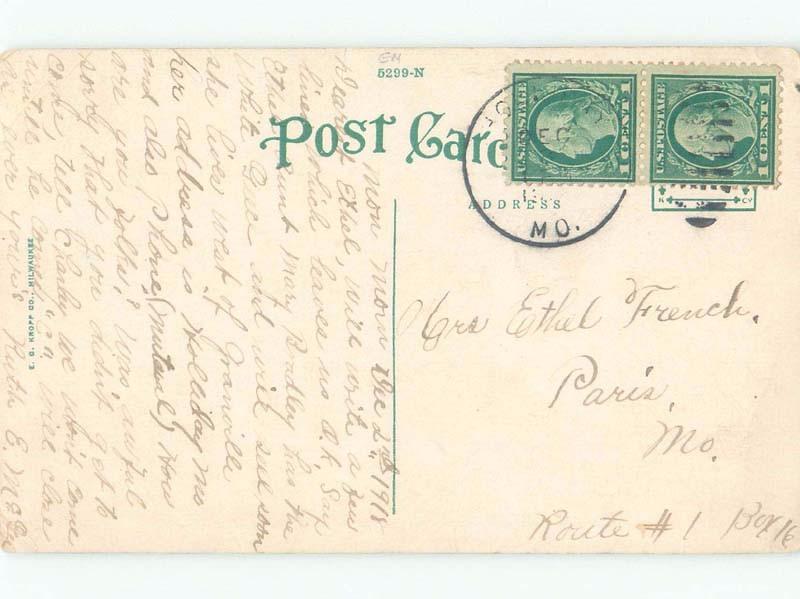 5299-N
POST CARD
ADDRESS
U.S. POSTAGE
1 CENT 1
U.S. POSTAGE
1 CENT 1
DEC
MO.
E. C. KROPP CO., MILWAUKEE
Mon morn Dec 2nd 1918
Dear Ethel, will write a few
lines which leaves us O.K. Say
Ethel Aunt Mary Bradley has the
White Geese and will sell som
she lives west of Granville
her address is Holliday Mo
and also phone (mutual) How
are you folks? I was awful
sorry that you didnt get to
come, tell Charley we don't come
until he comes
as ever yours Ruth E.
Mrs Ethel French.
Paris,
Mo.
Route #1 Box 16